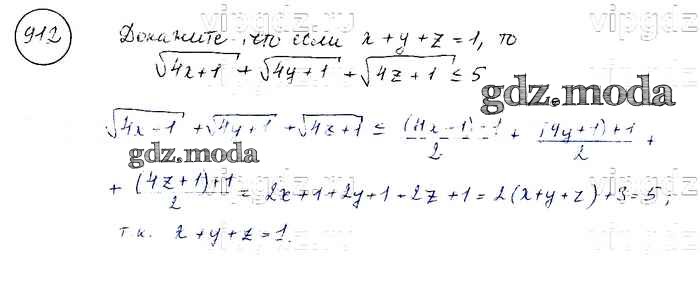 vipgdz
912
Докажите, что если x+y+z=1, то
√4x+1 + √4y+1 + √4z+1 ≤ 5
gdz.moda
√4x+1 + √4y+1 + √4z+1 ≤ (4x+1)+1/2 + (4y+1)+1/2 +
gdz.moda
+ (4z+1)+1/2 = 2x+1+2y+1+2z+1=2(x+y+z)+3=5;
т.к. x+y+z=1.